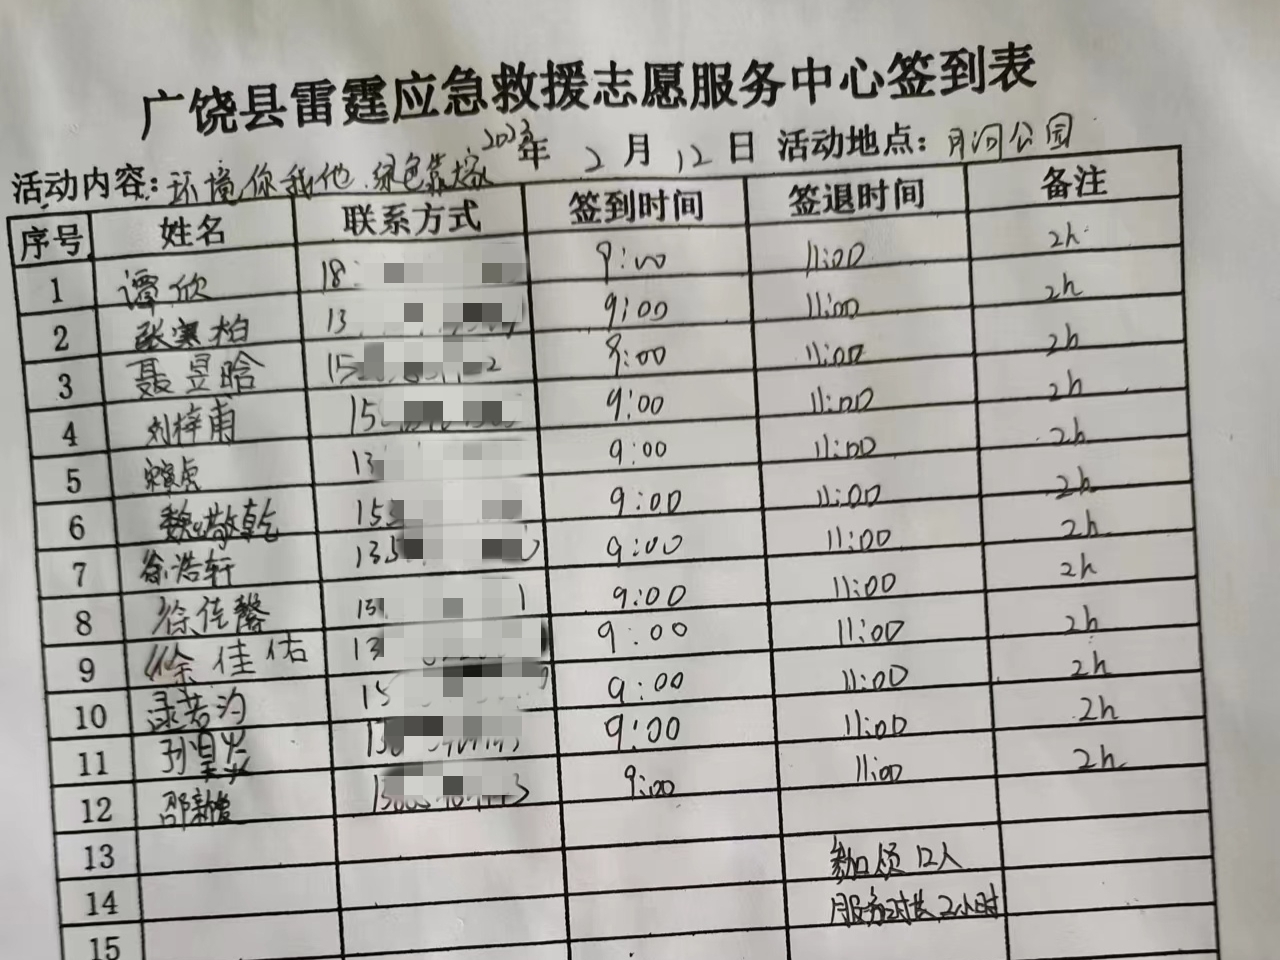 广饶县雷霆应急救援志愿服务中心签到表
活动内容：环境你我他.绿色靠大家 2023年 2月 12日 活动地点：月河公园
序号 姓名 联系方式 签到时间 签退时间 备注
1 谭欣 18 9:00 11:00 2h
2 张寒柏 13 9:00 11:00 2h
3 聂昱晗 15 2 9:00 11:00 2h
4 刘梓甬 15 9:00 11:00 2h
5 13 9:00 11:00 2h
6 魏敬乾 153 9:00 11:00 2h
7 徐浩轩 133 9:00 11:00 2h
8 徐佳馨 13 1 9:00 11:00 2h
9 徐佳佑 13 9:00 11:00 2h
10 15 9:00 11:00 2h
11 13 9:00 11:00 2h
12 邵新爱 13 3 9:00 11:00 2h
13 参加人员12人
14 服务时长2小时
15